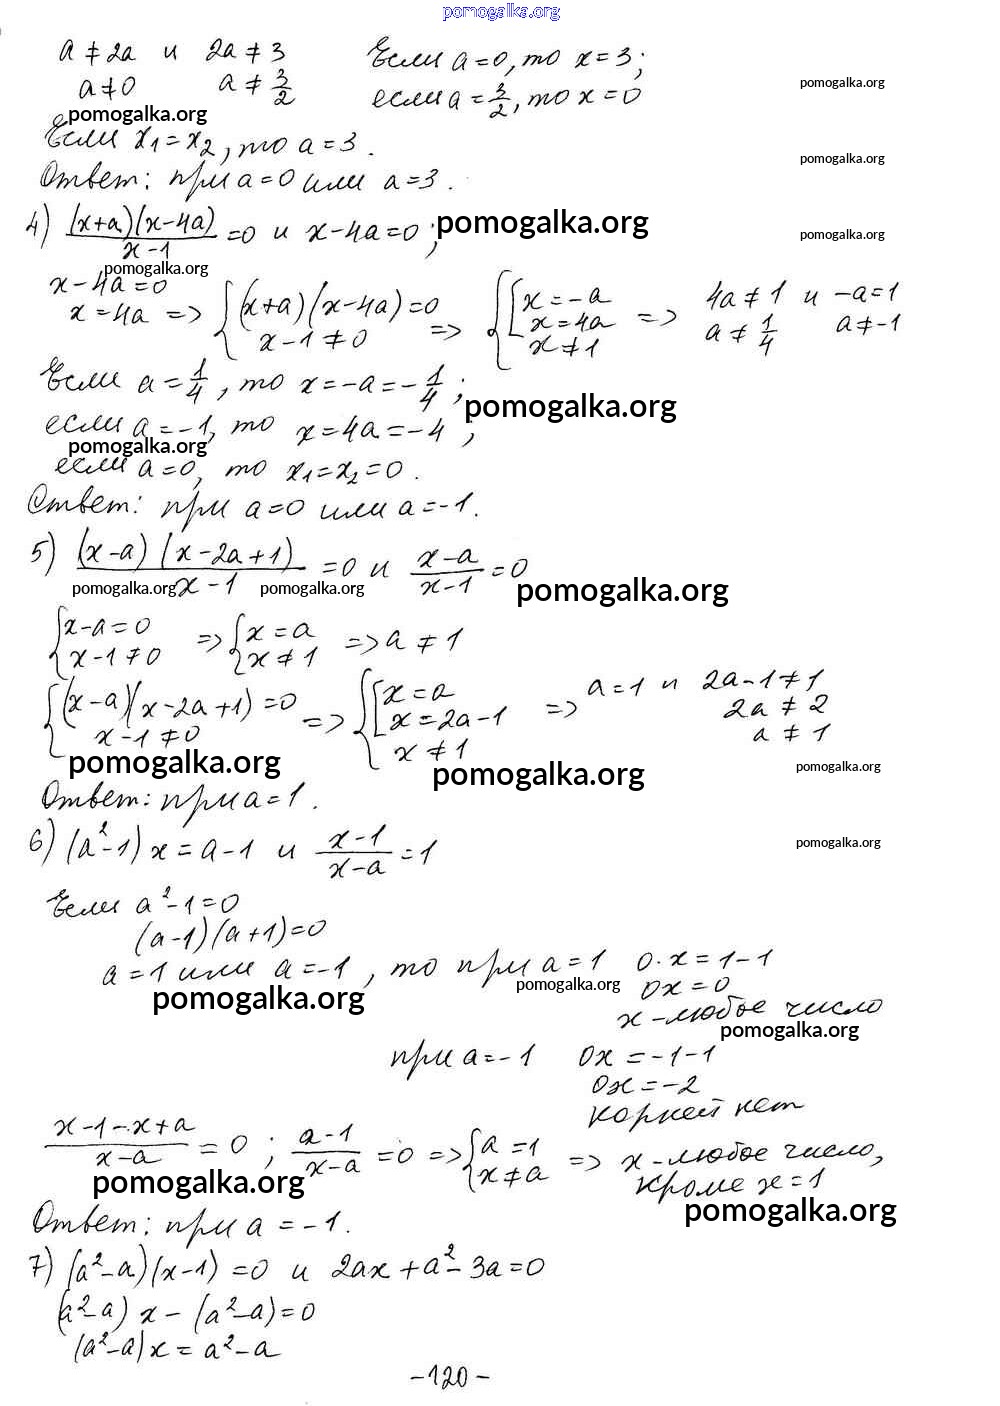 pomogalka.org
a ≠ 2a и 2a ≠ 3 Если a = 0, то x = 3;
a ≠ 0 a ≠ 3/2 если a = 3/2, то x = 0
pomogalka.org
pomogalka.org
Если x₁ = x₂, то a = 3.
pomogalka.org
Ответ: при a = 0 или a = 3.
4) (x+a)(x-4a)/(x-1) = 0 и x-4a = 0;
pomogalka.org
pomogalka.org
pomogalka.org
x-4a = 0
x = 4a => { (x+a)(x-4a) = 0 x-1 ≠ 0 => { [ x = -a x = 4a x ≠ 1 => 4a ≠ 1 и -a = 1
a ≠ 1/4 a ≠ -1
Если a = 1/4, то x = -a = -1/4;
pomogalka.org
если a = -1, то x = 4a = -4;
pomogalka.org
если a = 0, то x₁ = x₂ = 0.
Ответ: при a = 0 или a = -1.
5) (x-a)(x-2a+1)/(x-1) = 0 и (x-a)/(x-1) = 0
pomogalka.org
pomogalka.org
pomogalka.org
{ x-a = 0 x-1 ≠ 0 => { x = a x ≠ 1 => a ≠ 1
{ (x-a)(x-2a+1) = 0 x-1 ≠ 0 => { [ x = a x = 2a-1 x ≠ 1 => a = 1 и 2a-1 ≠ 1
2a ≠ 2
a ≠ 1
pomogalka.org
pomogalka.org
pomogalka.org
Ответ: при a = 1.
6) (a²-1)x = a-1 и (x-1)/(x-a) = 1
pomogalka.org
Если a²-1 = 0
(a-1)(a+1) = 0
a = 1 или a = -1, то при a = 1 0·x = 1-1
pomogalka.org
pomogalka.org
0x = 0
x - любое число
pomogalka.org
при a = -1 0x = -1-1
0x = -2
корней нет
(x-1-x+a)/(x-a) = 0; (a-1)/(x-a) = 0 => { a = 1 x ≠ a => x - любое число,
кроме x = 1
pomogalka.org
pomogalka.org
Ответ: при a = -1.
7) (a²-a)(x-1) = 0 и 2ax + a² - 3a = 0
(a²-a)x - (a²-a) = 0
(a²-a)x = a²-a
-120-